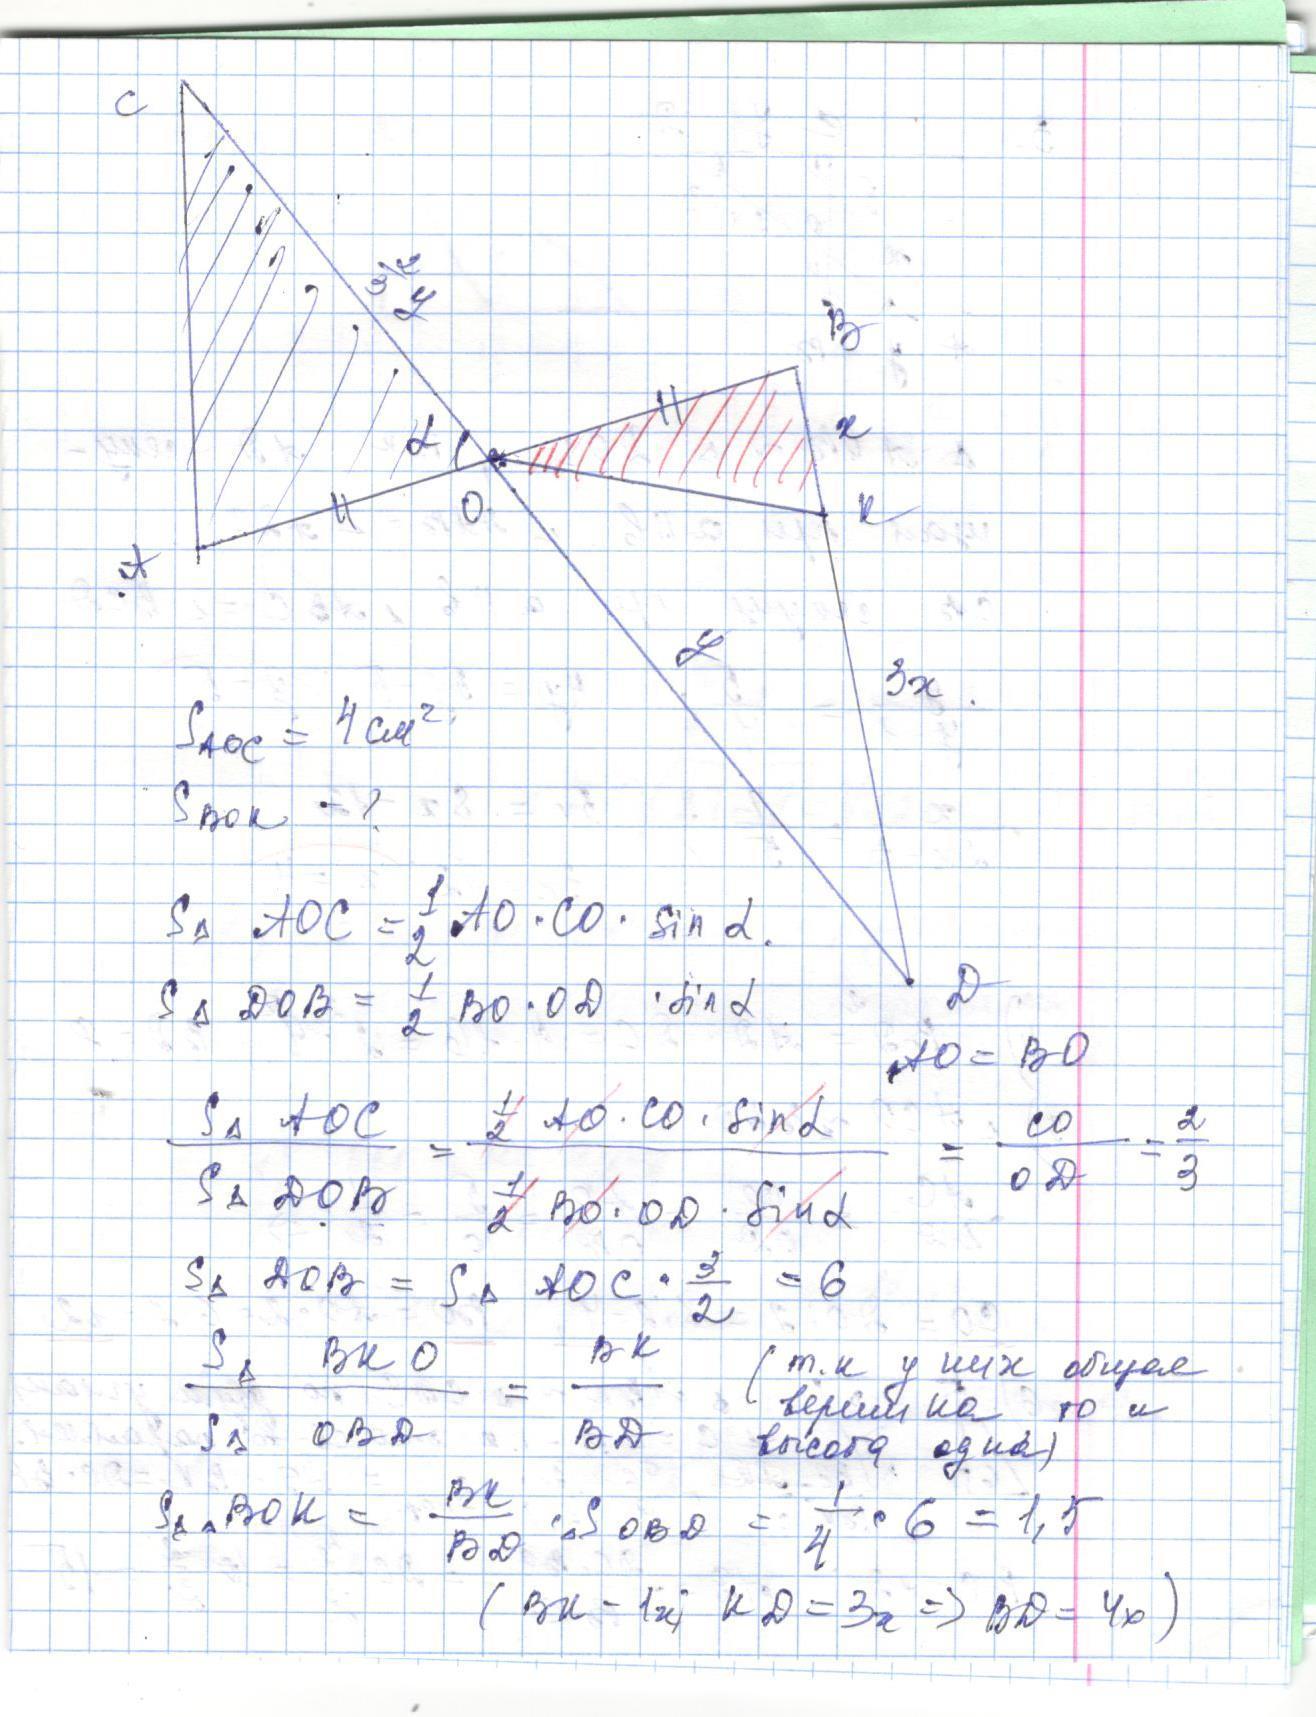 C
3\2
y
B
x
α
O
к
A
y
3x
S AOC = 4 см²
S BOK - ?
S∆ AOC = 1/2 AO · CO · sin α.
S∆ DOB = 1/2 BO · OD · sin α
D
AO = BO
S∆ AOC / S∆ DOB = 1/2 AO · CO · sin α / 1/2 BO · OD · sin α = CO / OD = 2/3
S∆ DOB = S∆ AOC · 3/2 = 6
S∆ BKO / S∆ OBD = BK / BD (т.к у них общая
вершина то и
высота одна)
S∆ BOK = BK / BD · S OBD = 1/4 · 6 = 1,5
(BK - 1x; KD = 3x => BD = 4x)